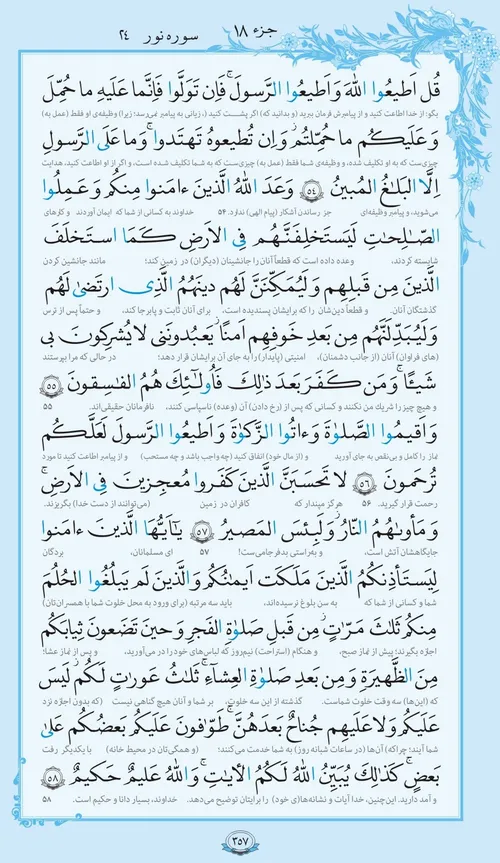 جزء ۱۸
سوره نور ۲۴
قُل اَطیعُوا اللهَ وَ اَطیعُوا الرَّسولَ ۖ فَاِن تَوَلَّوا فَاِنَّما عَلَیهِ ما حُمِّلَ
بگو: از خدا اطاعت کنید و از پیامبرش فرمان برید (و بدانید که) اگر پشت کنید (، زیانی به پیامبر نمی‌رسد؛ زیرا) وظیفه‌ی او فقط (عمل به)
وَ عَلَیکُم ما حُمِّلتُم ۖ وَ اِن تُطیعوهُ تَهتَدوا ۚ وَ ما عَلَی الرَّسولِ
چیزی‌ست که به او تکلیف شده، و وظیفه‌ی شما فقط (عمل به) چیزی‌ست که به شما تکلیف شده است، و اگر از او اطاعت کنید، هدایت
اِلَّا البَلٰغُ المُبینُ ﴿۵۴﴾ وَعَدَ اللهُ الَّذینَ ءامَنوا مِنکُم وَ عَمِلُوا
می‌شوید، و پیامبر وظیفه‌ای جز رساندن آشکار (پیام الهی) ندارد. ۵۴ خداوند به کسانی از شما که ایمان آوردند و کارهای
الصّٰلِحٰتِ لَیَستَخلِفَنَّهُم فِی الاَرضِ کَمَا استَخلَفَ
شایسته کردند، وعده داده است که قطعاً آنان را جانشینان (دیگران) در زمین کند؛ مانند جانشین کردن
الَّذینَ مِن قَبلِهِم وَ لَیُمَکِّنَنَّ لَهُم دینَهُمُ الَّذِی ارتَضیٰ لَهُم
گذشتگان آنان. و قطعاً دین‌شان را که برایشان پسندیده است، برای آنان ثابت و پابرجا کند، و حتماً پس از ترس
وَ لَیُبَدِّلَنَّهُم مِن بَعدِ خَوفِهِم اَمنًا ۚ یَعبُدونَنی لا یُشرِکونَ بی
(های فراوان) آنان (از جانب دشمنان)، امنیتی (پایدار) را به جای آن برایشان قرار دهد؛ در حالی که مرا بپرستند
شَیـًٔا ۚ وَ مَن کَفَرَ بَعدَ ذٰلِکَ فَاُولٰئِکَ هُمُ الفٰسِقونَ ﴿۵۵﴾
و هیچ چیز را شریك من نکنند و کسانی که پس از (رخ دادن) آن (وعده) ناسپاسی کنند، نافرمانان حقیقی‌اند. ۵۵
وَ اَقیمُوا الصَّلوٰةَ وَ ءاتُوا الزَّکوٰةَ وَ اَطیعُوا الرَّسولَ لَعَلَّکُم
نماز را کامل و بی‌نقص به جای آورید و (از مال خود) انفاق کنید (چه واجب باشد و چه مستحب) و از پیامبر اطاعت کنید تا مورد
تُرحَمونَ ﴿۵۶﴾ لا تَحسَبَنَّ الَّذینَ کَفَروا مُعجِزینَ فِی الاَرضِ ۚ
رحمت قرار گیرید. ۵۶ هرگز مپندار که کافران در زمین (می‌توانند از دست خدا) بگریزند.
وَ مَأوٰىهُمُ النّارُ ۖ وَ لَبِئسَ المَصیرُ ﴿۵۷﴾ یٰۤاَیُّهَا الَّذینَ ءامَنوا
جایگاهشان آتش است، و به‌راستی بدفرجامی‌ست! ۵۷ ای مسلمانان، بردگان
لِیَستَأذِنکُمُ الَّذینَ مَلَکَت اَیمٰنُکُم وَ الَّذینَ لَم یَبلُغُوا الحُلُمَ
شما و کسانی از شما که به سن بلوغ نرسیده‌اند، باید سه مرتبه (برای ورود به محل خلوت شما با همسران‌تان)
مِنکُم ثَلٰثَ مَرّٰتٍ ۚ مِن قَبلِ صَلوٰةِ الفَجرِ وَ حینَ تَضَعونَ ثِیابَکُم
اجازه بگیرند؛ پیش از نماز صبح، و هنگام (استراحت) نیم‌روز که لباس‌های خود را در می‌آورید، و پس از نماز عشا؛
مِنَ الظَّهیرَةِ وَ مِن بَعدِ صَلوٰةِ العِشاءِ ۚ ثَلٰثُ عَورٰتٍ لَکُم ۚ لَیسَ
که (این‌ها) سه وقت خلوت شماست. گذشته از این سه خلوت، بر شما و آنان هیچ گناهی نیست (که بدون اجازه نزد
عَلَیکُم وَ لا عَلَیهِم جُناحٌ بَعدَهُنَّ ۚ طَوّٰفونَ عَلَیکُم بَعضُکُم عَلیٰ
شما آیند؛ چراکه) آن‌ها (در ساعات شبانه روز) به شما خدمت می‌کنند؛ (و همگی‌تان در محیط خانه) با یکدیگر رفت
بَعضٍ ۚ کَذٰلِکَ یُبَیِّنُ اللهُ لَکُمُ الـٔایٰتِ ۗ وَ اللهُ عَلیمٌ حَکیمٌ ﴿۵۸﴾
و آمد دارید. این‌چنین، خدا آیات و نشانه‌ها(ی خود) را برایتان توضیح می‌دهد. خداوند، بسیار دانا و حکیم است. ۵۸
۳۵۷